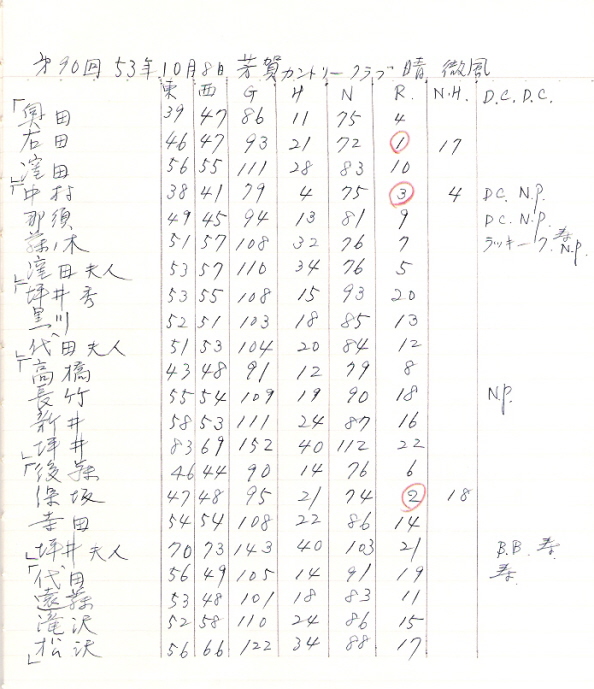 第90回 53年10月8日 芳賀カントリークラブ 晴 微風
東 西 G H N R. N.H. D.C. D.C.
「奥田 39 47 86 11 75 4
右田 46 47 93 21 72 1 17
窪田 56 55 111 28 83 10
「中村 38 41 79 4 75 3 4 DC. N.p.
那須 49 45 94 13 81 9 DC. N.p.
藤ノ木 51 57 108 32 76 7 ラッキー7. N.p.
窪田夫人 53 57 110 34 76 5
「坪井秀 53 55 108 15 93 20
黒川 52 51 103 18 85 13
代田夫人 51 53 104 20 84 12
「高橋 43 48 91 12 79 8
長竹 55 54 109 19 90 18 N.p.
新井 58 53 111 24 87 16
坪井 83 69 152 40 112 22
「後藤 46 44 90 14 76 6
保坂 47 48 95 21 74 2 18
寺田 54 54 108 22 86 14
坪井夫人 70 73 143 40 103 21 B.B.
「代田 56 49 105 14 91 19
遠藤 53 48 101 18 83 11
滝沢 52 58 110 24 86 15
松沢 56 66 122 34 88 17